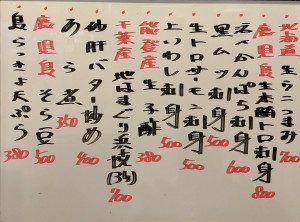 北海道 生ウニつまみ 700
鹿児島 生本鮪トロ刺身 800
えんがわ刺身 600
黒ムツ刺身 600
生トロサーモン刺身 500
上いわし刺身 500
能登産 生子酢 380
千葉産 地はまぐり浜焼(3ヶ) 700
砂肝バター炒め 400
あら煮 350
鹿児島 そら豆 500
島らっきょ天ぷら 380